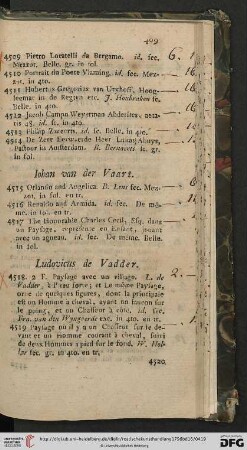 409
4509 Pietro Locatelli da Bergamo. id. fec.
Mezzot. Belle. gr. in fol.
4510 Portrait du Poete Vlaming. id. fec. Mez-
zot. in 4to.
4511 Hubertus Gregorius van Vryhoff, Hoog-
leeraar in de Regten etc. J. Houbraken fc.
Belle. in 4to.
4512 Jacob Campo Weyerman Abderites, aeta-
tis 48. id. fc. in 4to.
4513 Philip Zweerts. id. fc. Belle. in 4to.
4514 De Zeer Eerwaerde Heer Lucas Ahuys,
Pastoor in Amsterdam. B. Bernaerts fc. gr.
in fol.
Iohan van der Vaart.
4515 Orlando and Angelica B. Lens fec. Mez-
zot, in fol. en tr.
4516 Renaldo and Armida. id. fec. De mê-
me. in fol. en tr.
4517 The Honorable Charles Cecil, Esq. dans
un Paysage, représenté en Enfant, jouant
avec un agneau. id. fec. De même. Belle.
in fol.
Ludovicus de Vadder.
4518. 2 F. Paysage avec un village. L. de
Vadder, à l'eau forte; et Le même Paysage,
orné de quelques figures, dont la principale
est un Homme à cheval, ayant un faucon sur
le poing, et un Chasseur à côté. id. fec.
Fra. van den Wyngaerde exc. in 4to. en tr.
4519 Paysage où il y a un Chasseur sur le de-
vant et un Homme courant à cheval, suivi
de deux Hommes à pied sur le fond. W. Hol-
lar fec. gr. in 4to. en tr.
4520
6.
2.
http://digi.ub.uni-heidelberg.de/diglit/
DFG